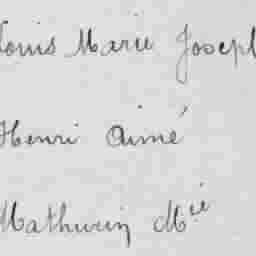 Louis Marie Joseph
Henri Aimé
Mathurin Mie